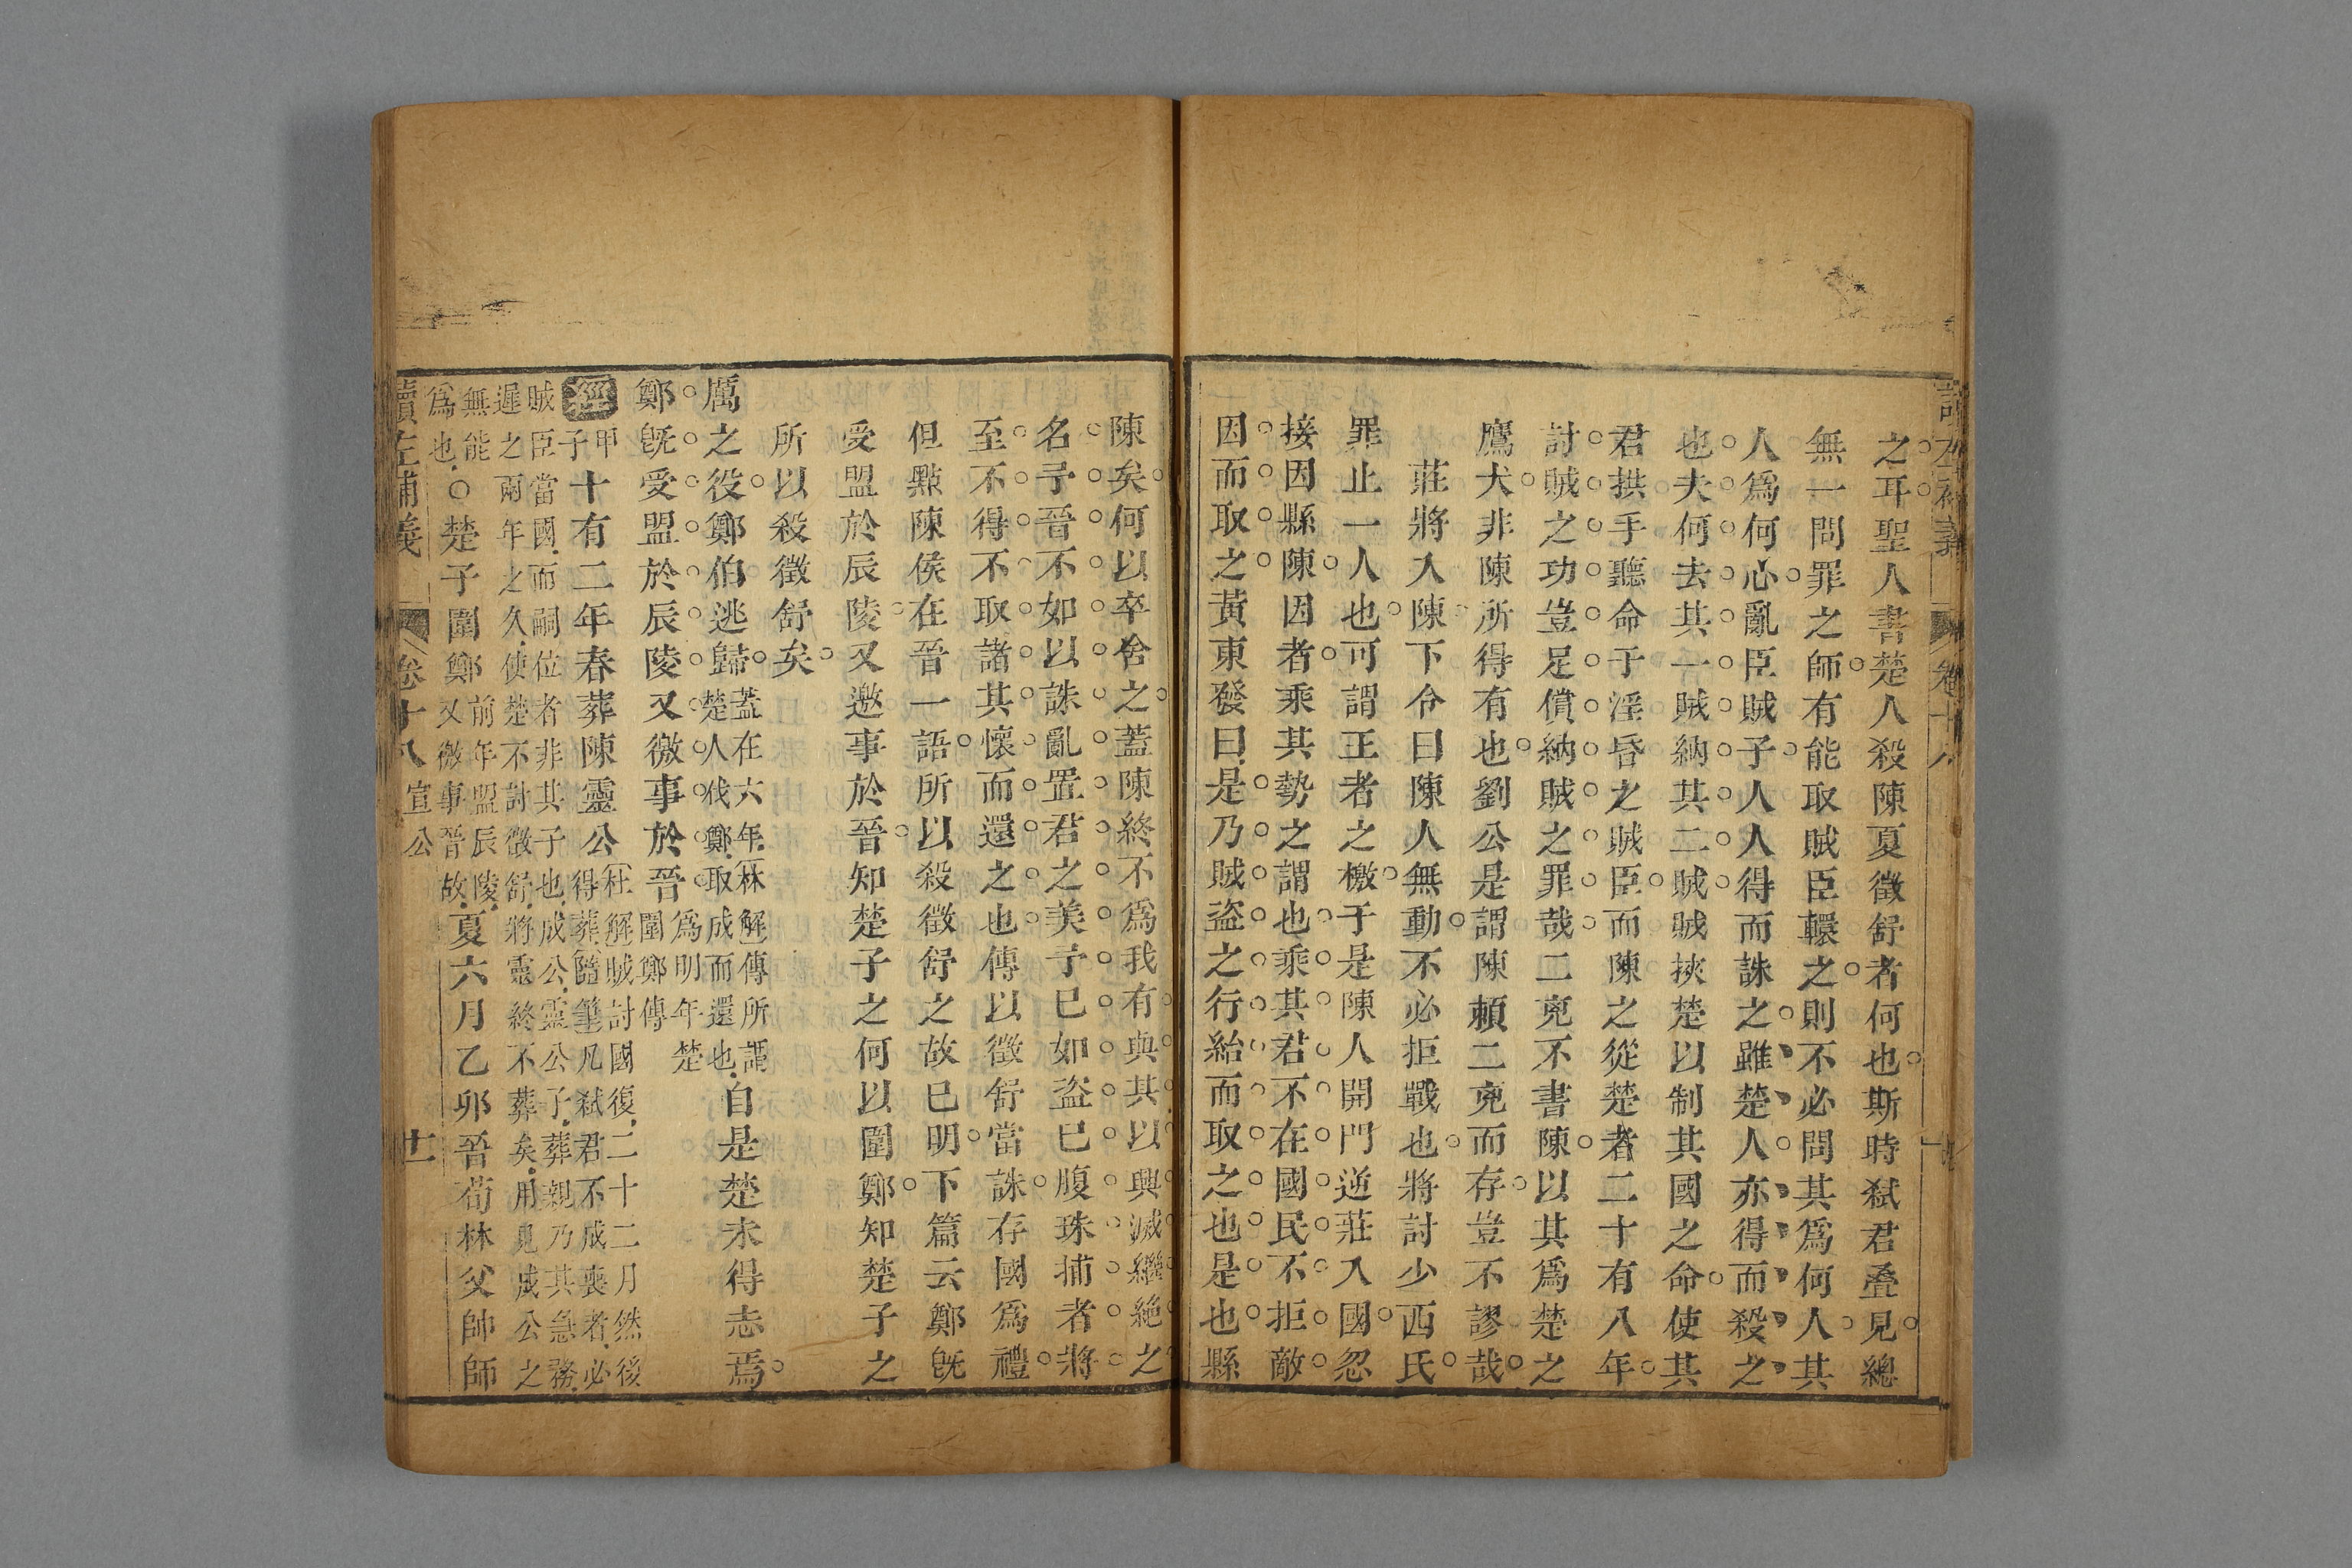 之耳聖人書楚人殺陳夏徵舒者何也斯時弑君疊見總
無一問罪之師有能取賊臣轘之則不必問其爲何人其
人爲何心亂臣賊子人人得而誅之雖楚人亦得而殺之
也夫何去其一賊納其二賊賊挾楚以制其國之命使其
君拱手聽命于淫昏之賊臣而陳之從楚者二十有八年
討賊之功豈足償納賊之罪哉二兇不書陳以其爲楚之
鷹犬非陳所得有也劉公是謂陳賴二兇而存豈不謬哉
莊將入陳下令曰陳人無動不必拒戰也將討少西氏
罪止一人也可謂王者之檄于是陳人開門逆莊入國忽
接因縣陳因者乘其勢之謂也乘其君不在國民不拒敵
因而取之黃東發曰是乃賊盜之行紿而取之也是也縣
陳矣何以卒舍之蓋陳終不爲我有與其以興滅繼絶之
名予晉不如以誅亂置君之美予已如盜已腹珠捕者將
至不得不取諸其懷而還之也傳以徵舒當誅存國爲禮
但點陳侯在晉一語所以殺徵舒之故已明下篇云鄭旣
受盟於辰陵又邀事於晉知楚子之何以圍鄭知楚子之
所以殺徵舒矣
厲之役鄭伯逃歸蓋在六年林解傳所謂楚人伐鄭取成而還也自是楚未得志焉
鄭旣受盟於辰陵又徼事於晉爲明年楚圍鄭傳
經甲子十有二年春葬陳靈公杜解賊討國復二十二月然後得葬隨筆凡弑君不成喪者必
賊臣當國而嗣位者非其子也成公靈公子葬親乃其急務遲之兩年之久使楚不討徵舒將靈終不葬矣用見成公之
無能爲也○楚子圍鄭前年盟辰陵又徼事晉故夏六月乙卯晉荀林父帥師
讀左補義 卷十八 宣公 十一